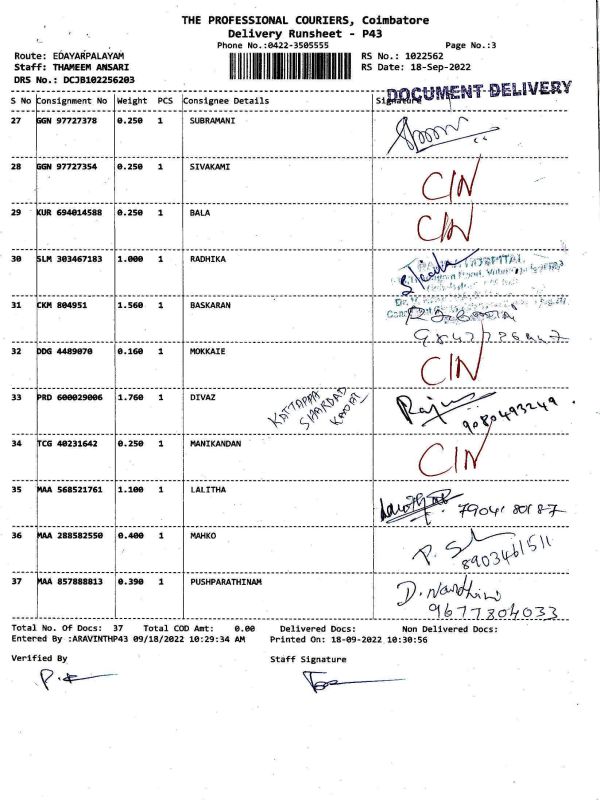 THE PROFESSIONAL COURIERS, Coimbatore
Delivery Runsheet - P43
Phone No.:0422-3505555 Page No.:3
Route: EDAYARPALAYAM RS No.: 1022562
Staff: THAMEEM ANSARI RS Date: 18-Sep-2022
DRS No.: DCJB102256203
DOCUMENT DELIVERY
S No Consignment No Weight PCS Consignee Details Signature
27 GGN 97727378 0.250 1 SUBRAMANI
28 GGN 97727354 0.250 1 SIVAKAMI C/N
29 KUR 694014588 0.250 1 BALA C/N
30 SLM 303467183 1.000 1 RADHIKA
31 CKM 804951 1.560 1 BASKARAN
32 DDG 4489070 0.160 1 MOKKAIE C/N
33 PRD 600029006 1.760 1 DIVAZ KATTAPPA Raju
9080493249
34 TCG 40231642 0.250 1 MANIKANDAN C/N
35 MAA 568521761 1.100 1 LALITHA
7904180187
36 MAA 288582550 0.400 1 MAHKO
8903461511
37 MAA 857888813 0.390 1 PUSHPARATHINAM D. Nandhini
9677804033
Total No. Of Docs: 37 Total COD Amt: 0.00 Delivered Docs: Non Delivered Docs:
Entered By :ARAVINTHP43 09/18/2022 10:29:34 AM Printed On: 18-09-2022 10:30:56
Verified By Staff Signature